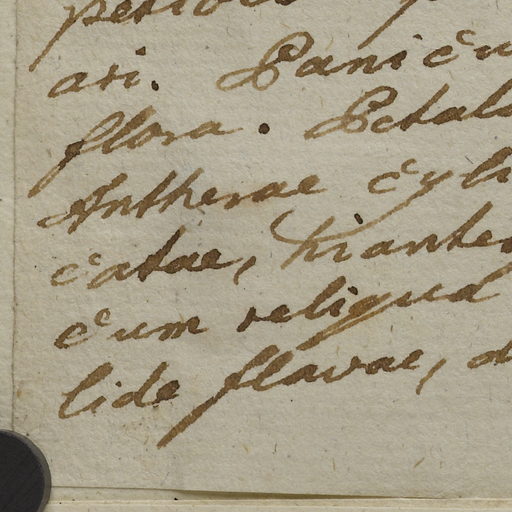 asi. Panicu
flora. Petal
Antherae cyli
catae, hiantes
cum reliqua
lide flavae, d